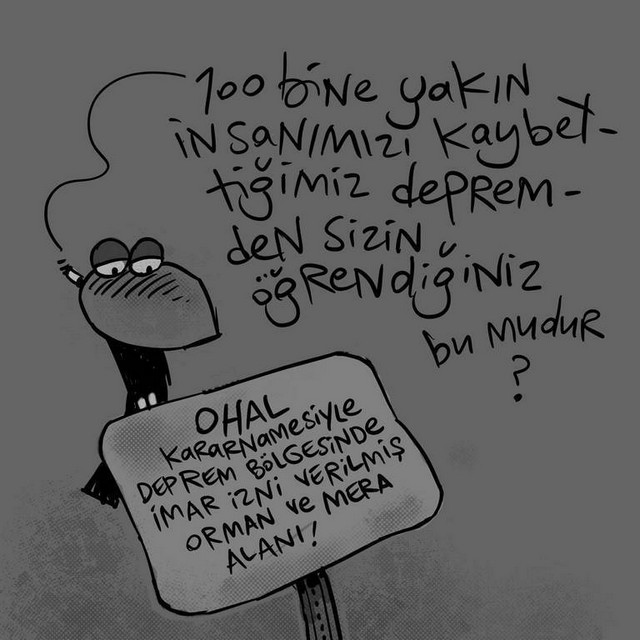 100 bine yakın
insanımızı kaybet-
tiğimiz deprem-
den sizin
öğrendiğiniz
bu mudur
?
OHAL
KARARNamesiyle
DEPREM BÖLGESİNDE
İMAR İZNİ VERİLMİŞ
ORMAN ve MERA
ALANI!